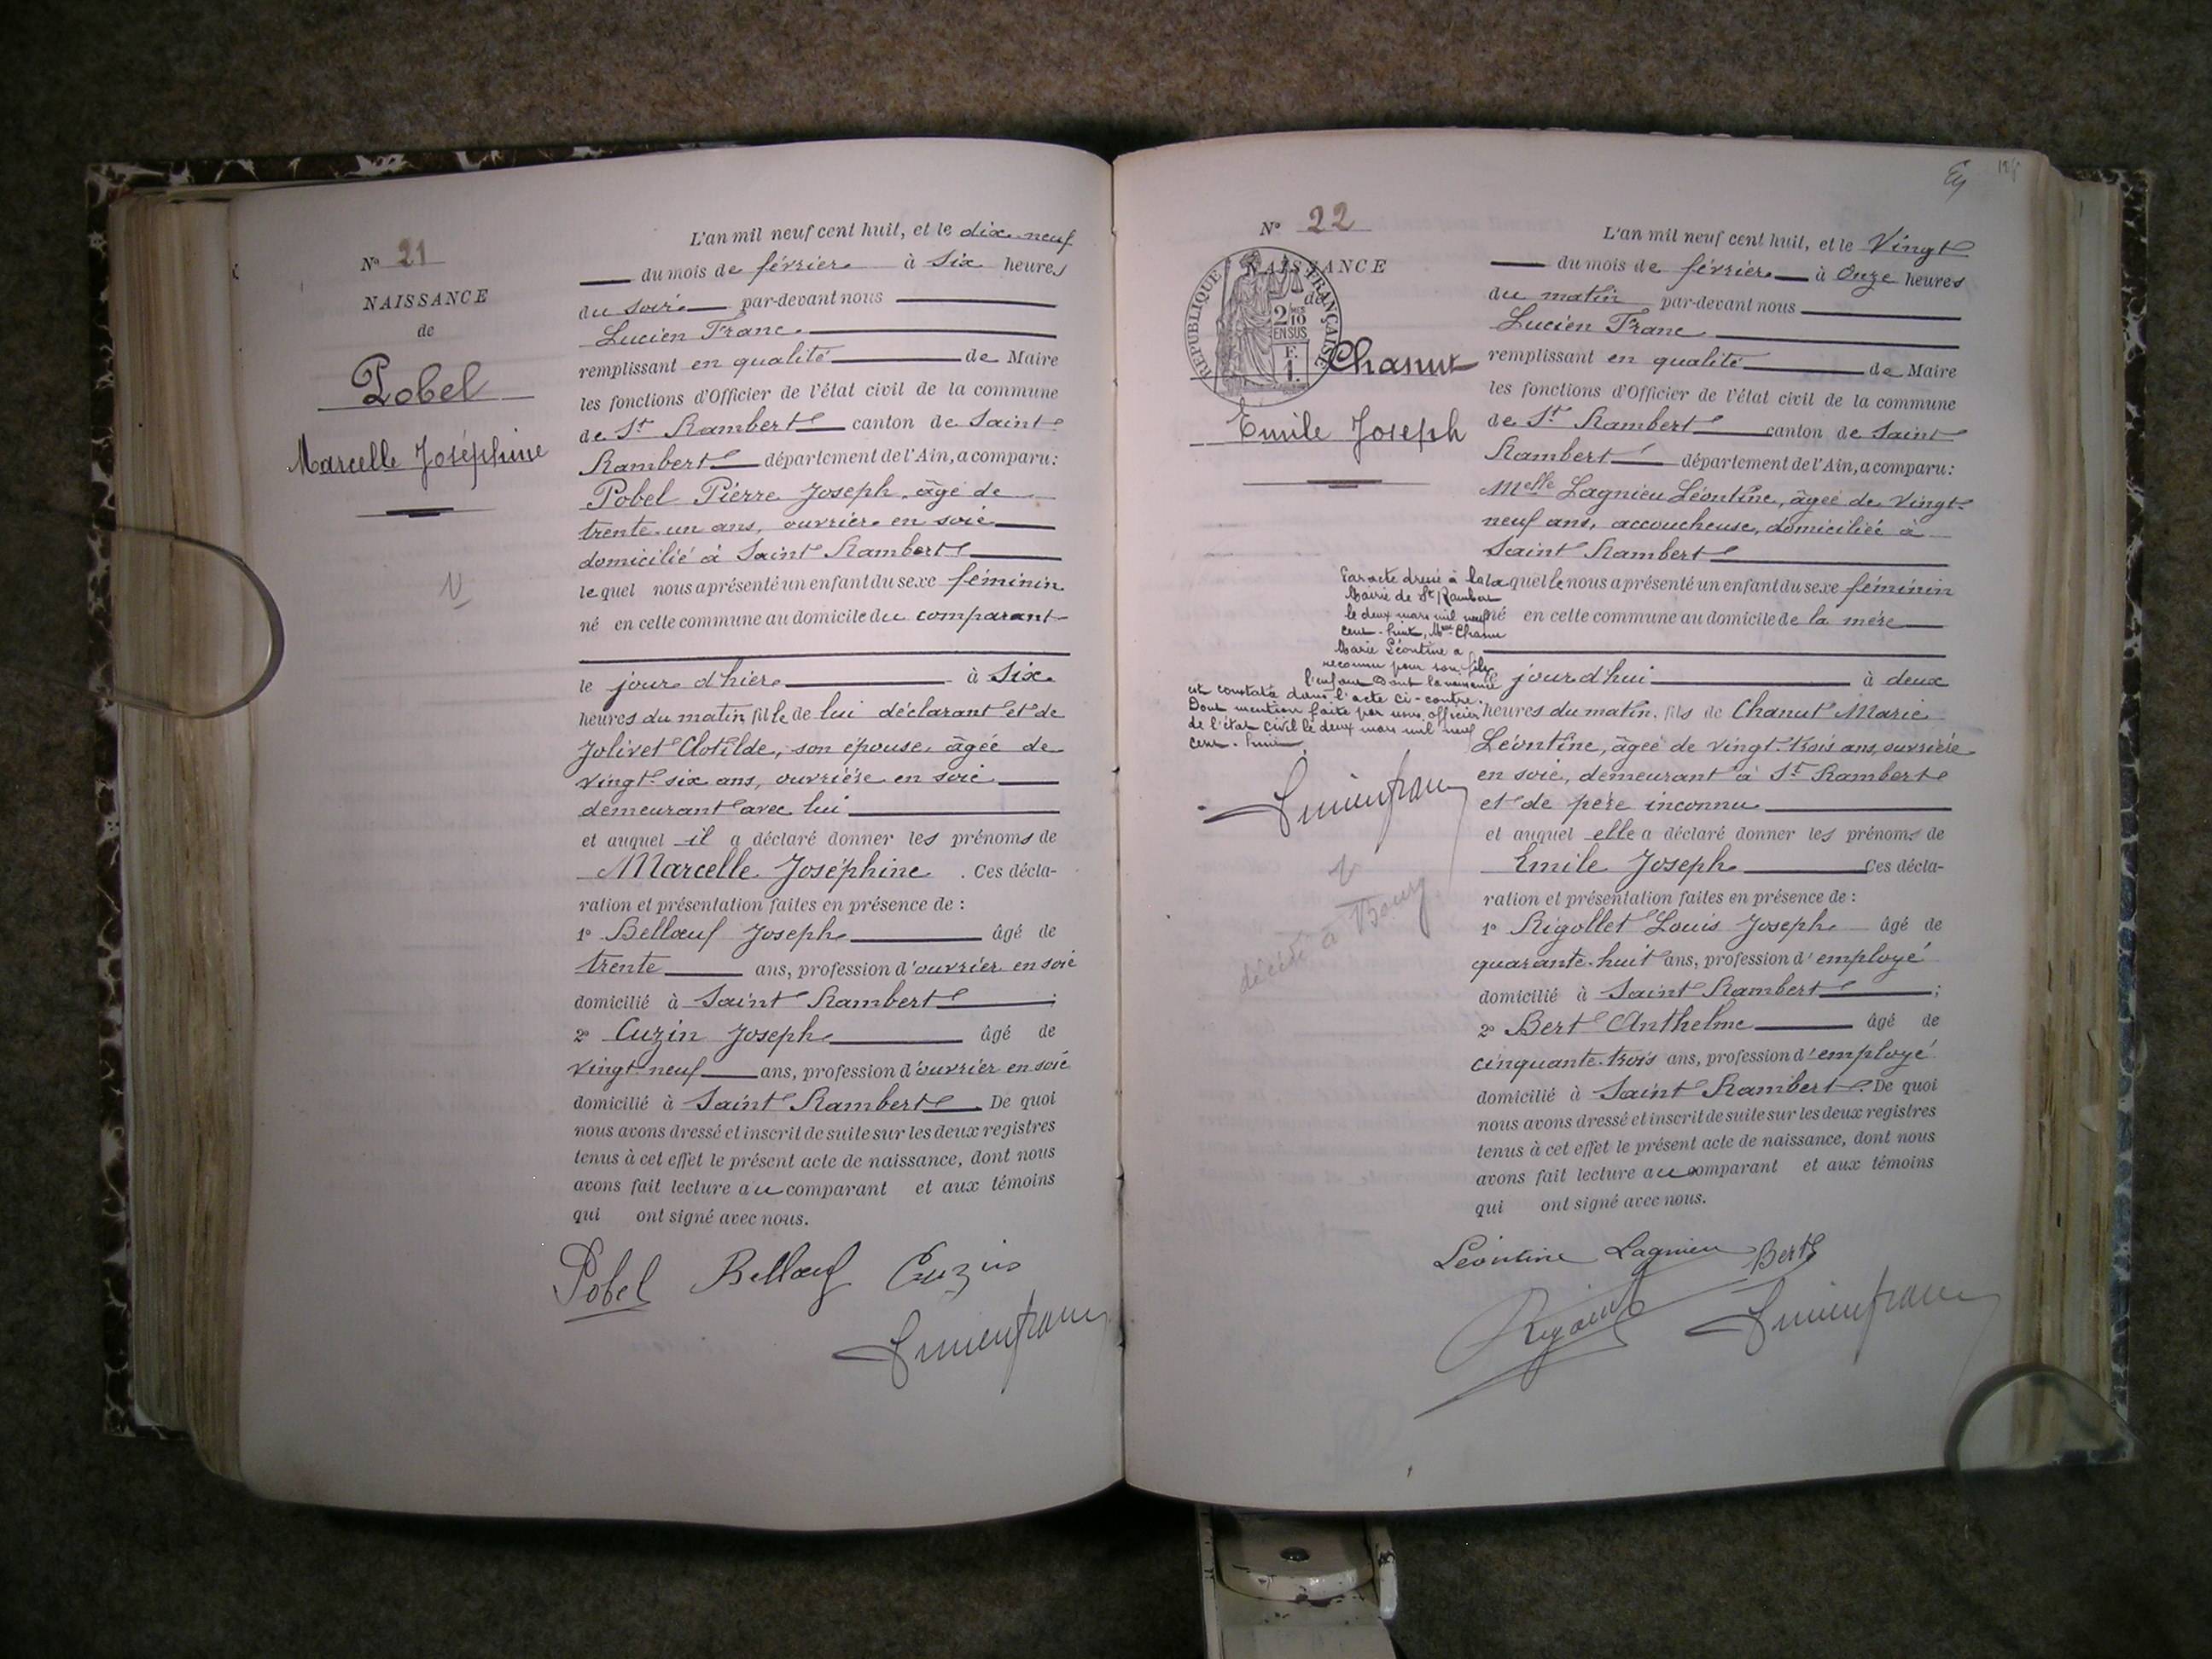 N° 21
NAISSANCE
de
Pobel
Marcelle Joséphine
L'an mil neuf cent huit, et le dix-neuf
du mois de février à six heures
du soir par-devant nous
Lucien Franc
remplissant en qualité de Maire
les fonctions d'Officier de l'état civil de la commune
de St Rambert canton de Saint
Rambert département de l'Ain, a comparu:
Pobel Pierre Joseph, âgé de
trente-un ans, ouvrier en soie
domicilié à Saint Rambert
lequel nous a présenté un enfant du sexe féminin
né en cette commune au domicile du comparant
le jour d'hier à six
heures du matin, fille de lui déclarant et de
Jolivet Clotilde, son épouse, âgée de
vingt-six ans, ouvrière en soie
demeurant avec lui
et auquel il a déclaré donner les prénoms de
Marcelle Joséphine. Ces décla-
ration et présentation faites en présence de:
1° Bellœuf Joseph âgé de
trente ans, profession d'ouvrier en soie
domicilié à Saint Rambert;
2° Cuzin Joseph âgé de
vingt-neuf ans, profession d'ouvrier en soie
domicilié à Saint Rambert. De quoi
nous avons dressé et inscrit de suite sur les deux registres
tenus à cet effet le présent acte de naissance, dont nous
avons fait lecture au comparant et aux témoins
qui ont signé avec nous.
Pobel Bellœuf Cuzin
Lucien Franc
N° 22
NAISSANCE
de
RÉPUBLIQUE FRANÇAISE
2/10
EN SUS
F.
1.
Chanut
Emile Joseph
Par acte dressé à la
Mairie de St Rambert
le deux mars mil neuf
cent-huit, Chanut
Marie Léontine a
reconnu pour son fils
l'enfant dont la naissance
est constatée dans l'acte ci-contre.
Dont mention faite par nous, officier
de l'état civil le deux mars mil neuf
cent-huit
Lucien Franc
décédé à Bourg
L'an mil neuf cent huit, et le Vingt
du mois de février à Onze heures
du matin par-devant nous
Lucien Franc
remplissant en qualité de Maire
les fonctions d'Officier de l'état civil de la commune
de St Rambert canton de Saint
Rambert département de l'Ain, a comparu:
Melle Lagnieu Léontine, âgée de vingt-
neuf ans, accoucheuse, domiciliée à
Saint Rambert
laquelle nous a présenté un enfant du sexe féminin
né en cette commune au domicile de la mère
le jour d'hui à deux
heures du matin, fils de Chanut Marie
Léontine, âgée de vingt-trois ans, ouvrière
en soie, demeurant à St Rambert
et de père inconnu
et auquel elle a déclaré donner les prénoms de
Emile Joseph Ces décla-
ration et présentation faites en présence de:
1° Rigollet Louis Joseph âgé de
quarante-huit ans, profession d'employé
domicilié à Saint Rambert;
2° Bert Anthelme âgé de
cinquante-trois ans, profession d'employé
domicilié à Saint Rambert. De quoi
nous avons dressé et inscrit de suite sur les deux registres
tenus à cet effet le présent acte de naissance, dont nous
avons fait lecture au comparant et aux témoins
qui ont signé avec nous.
Léontine Lagnieu Bert
Lucien Franc